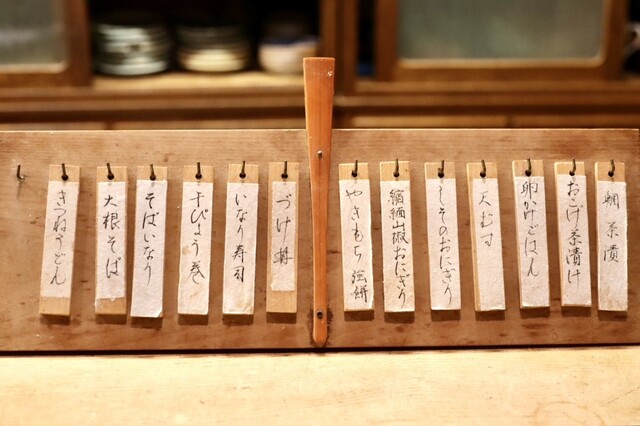 鯛茶漬
おこげ茶漬け
卵かけごはん
天むす
しそのおにぎり
縮緬山椒おにぎり
やきもち 強餅
づけ丼
いなり寿司
干ぴょう巻
そばいなり
大根そば
きつねうどん